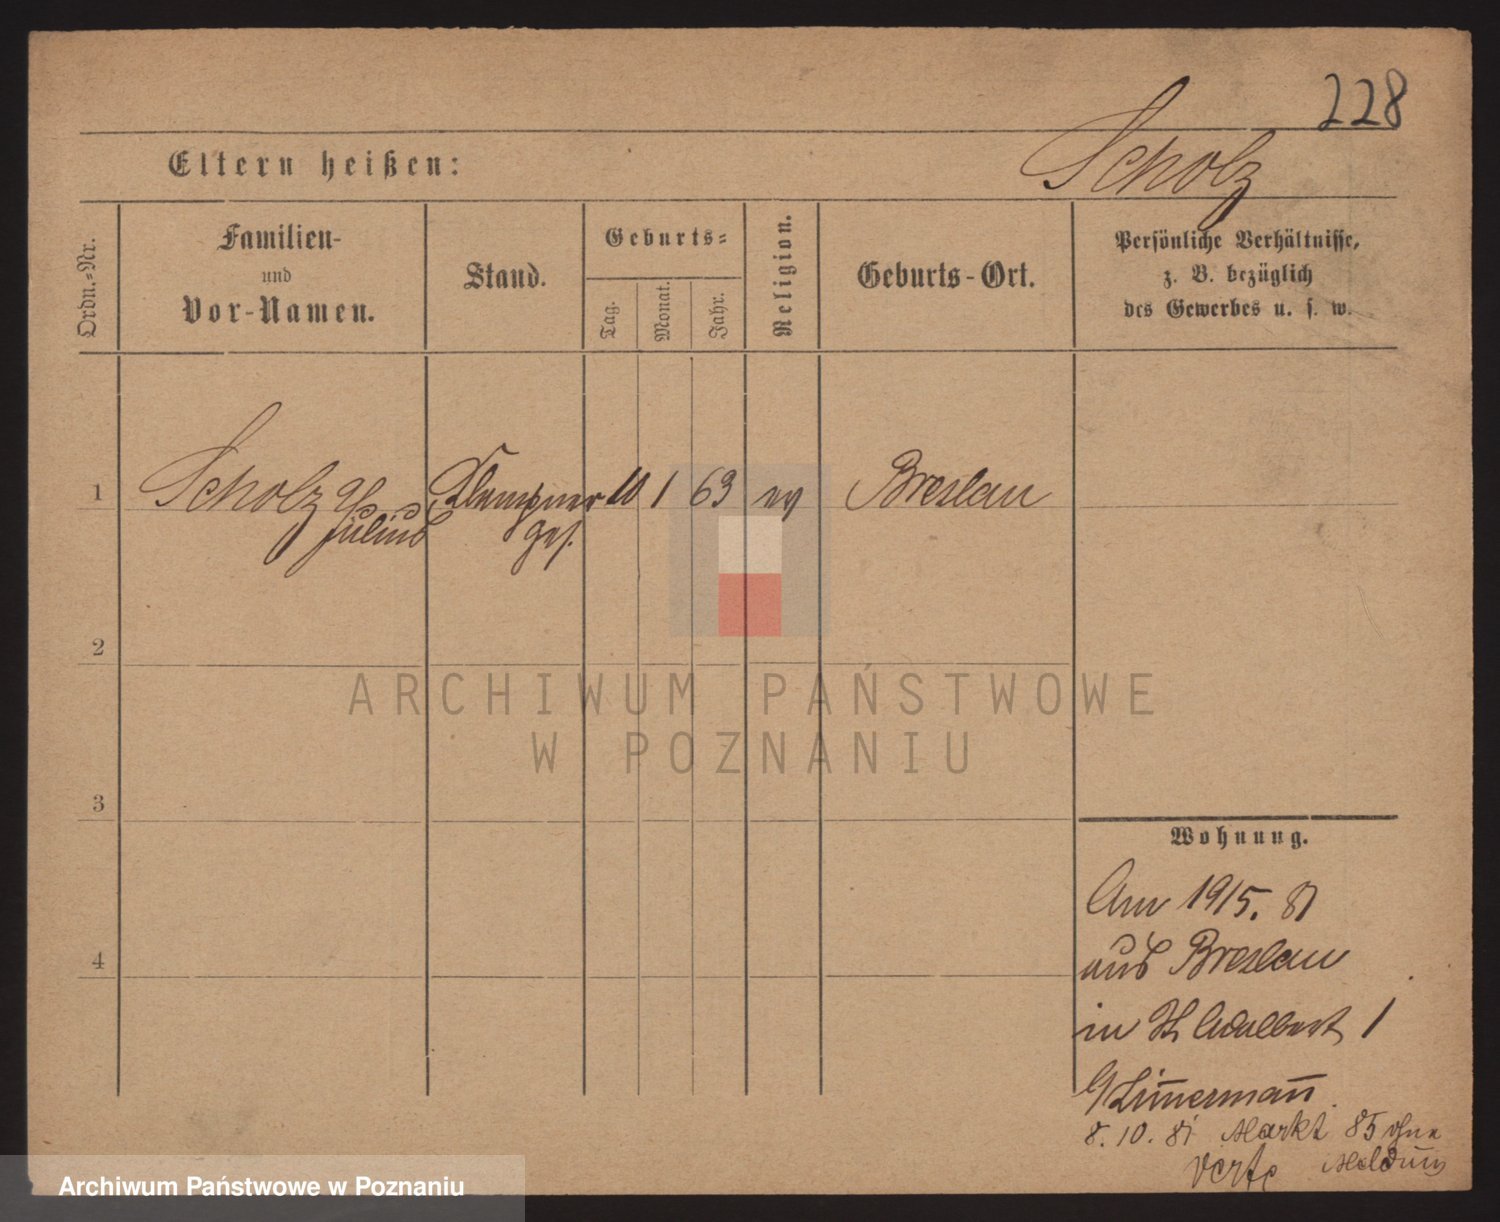 228
Scholz
Eltern heißen:
Ordn.-Nr.
Familien-
und
Vor-Namen.
Stand.
Geburts-
Tag.
Monat.
Jahr.
Religion.
Geburts-Ort.
Persönliche Verhältnisse,
z. B. bezüglich
des Gewerbes u. s. w.
1
Scholz
Julius
Klempner
ges.
10
1
63
ev
Breslau
2
3
4
ARCHIWUM PAŃSTWOWE
W POZNANIU
Wohnung.
Am 19/5. 81
aus Breslau
in St Adalbert 1
b/ Zim̄erman̄
8. 10. 81 Markt 85 ohne
Meldung
verte
Archiwum Państwowe w Poznaniu